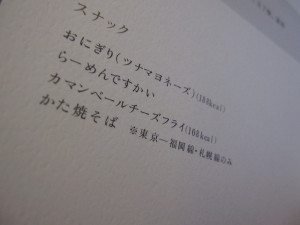 スナック
おにぎり(ツナマヨネーズ)(188kcal)
らーめんですかい
カマンベールチーズフライ(108kcal)
かた焼そば ※東京―福岡線・札幌線のみ